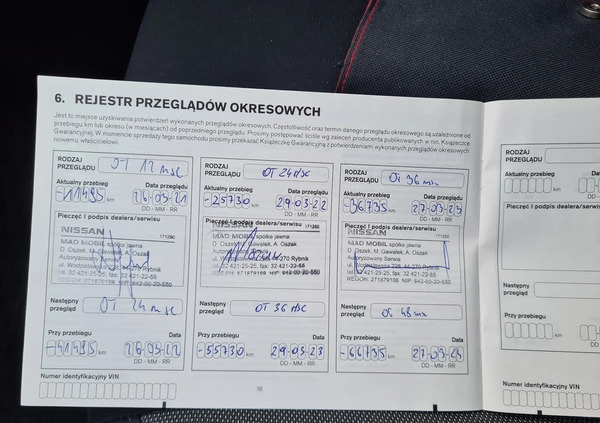 6. REJESTR PRZEGLĄDÓW OKRESOWYCH
Jest to miejsce uzyskiwania potwierdzeń wykonanych przeglądów okresowych. Częstotliwość oraz termin danego przeglądu okresowego są uzależnione od
przebiegu km lub okresu (w miesiącach) od poprzedniego przeglądu. Prosimy postępować ściśle wg zaleceń producenta publikowanych w nin. Książeczce
Gwarancyjnej. W momencie sprzedaży tego samochodu prosimy przekazać Książeczkę Gwarancyjną z potwierdzeniami wykonanych przeglądów okresowych
nowemu właścicielowi.
RODZAJ PRZEGLĄDU OT 12 msc
Aktualny przebieg Data przeglądu
-11495 km 26-03-21
DD - MM - RR
Pieczęć i podpis dealera/serwisu
NISSAN 171260
MAD MOBIL spółka jawna
D. Oszek, M. Gawałek, A. Oszek
Autoryzowany
ul. Wodzisławska
tel. 32 421-25-25, fax. 32 421-22-55
REGON: 271879108 NIP: 642-00-32-550
Następny przegląd OT 24 msc
Przy przebiegu Data
-41495 km 26-03-22
DD - MM - RR
Numer identyfikacyjny VIN
RODZAJ PRZEGLĄDU OT 24 MSC
Aktualny przebieg Data przeglądu
-25730 km 29-03-22
DD - MM - RR
Pieczęć i podpis dealera/serwisu
NISSAN 171260
MAD MOBIL spółka jawna
D. Oszek, M. Gawałek, A. Oszek
ul. 44-270 Rybnik
tel. 32 421-25-25, fax. 32 421-22-55
REGON: 271879108 NIP: 642-00-32-550
Następny przegląd OT 36 MSC
Przy przebiegu Data
-55730 km 29-03-23
DD - MM - RR
RODZAJ PRZEGLĄDU 36 msc
Aktualny przebieg Data przeglądu
-36735 km 27-03-23
DD - MM - RR
Pieczęć i podpis dealera/serwisu
NISSAN 171260
MAD MOBIL spółka jawna
D. Oszek, M. Gawałek, A. Oszek
Autoryzowany Serwis
44-270 Rybnik
tel. 32 421-25-25, fax. 32 421-22-55
REGON: 271879108 NIP: 642-00-32-550
Następny przegląd 48 msc
Przy przebiegu Data
-66735 km 27-03-24
DD - MM - RR
16
RODZAJ
PRZEGLĄDU
Aktualny przebieg
km
DD
Pieczęć i podpis dealera/se
Następny
przegląd
Przy przebiegu
km
Numer identyfikacyjny VIN